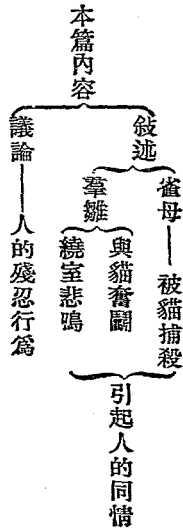 本篇內容
敍述
雀母——被貓捕殺
羣雛
與貓奮鬭
繞室悲鳴
引起人的同情
議論——人的殘忍行爲